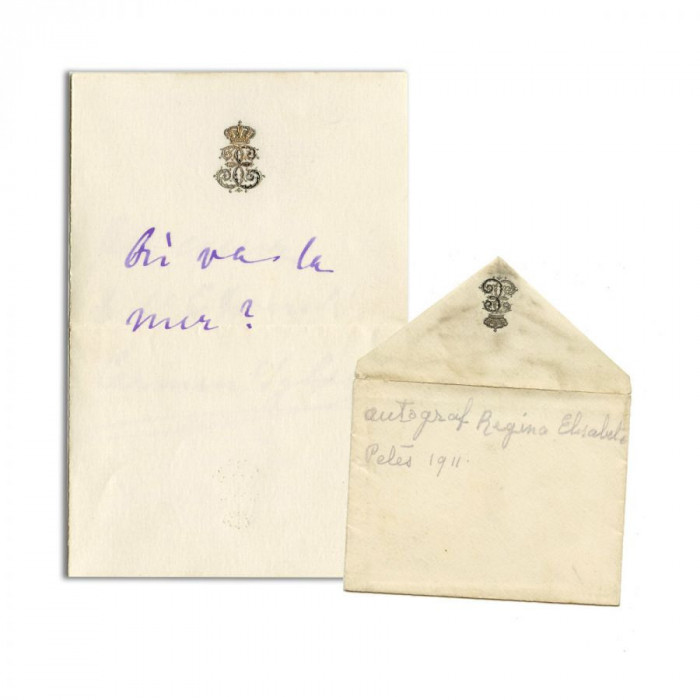 Où va la
mer?
autograf Regina Elisabeta
Peleș 1911.